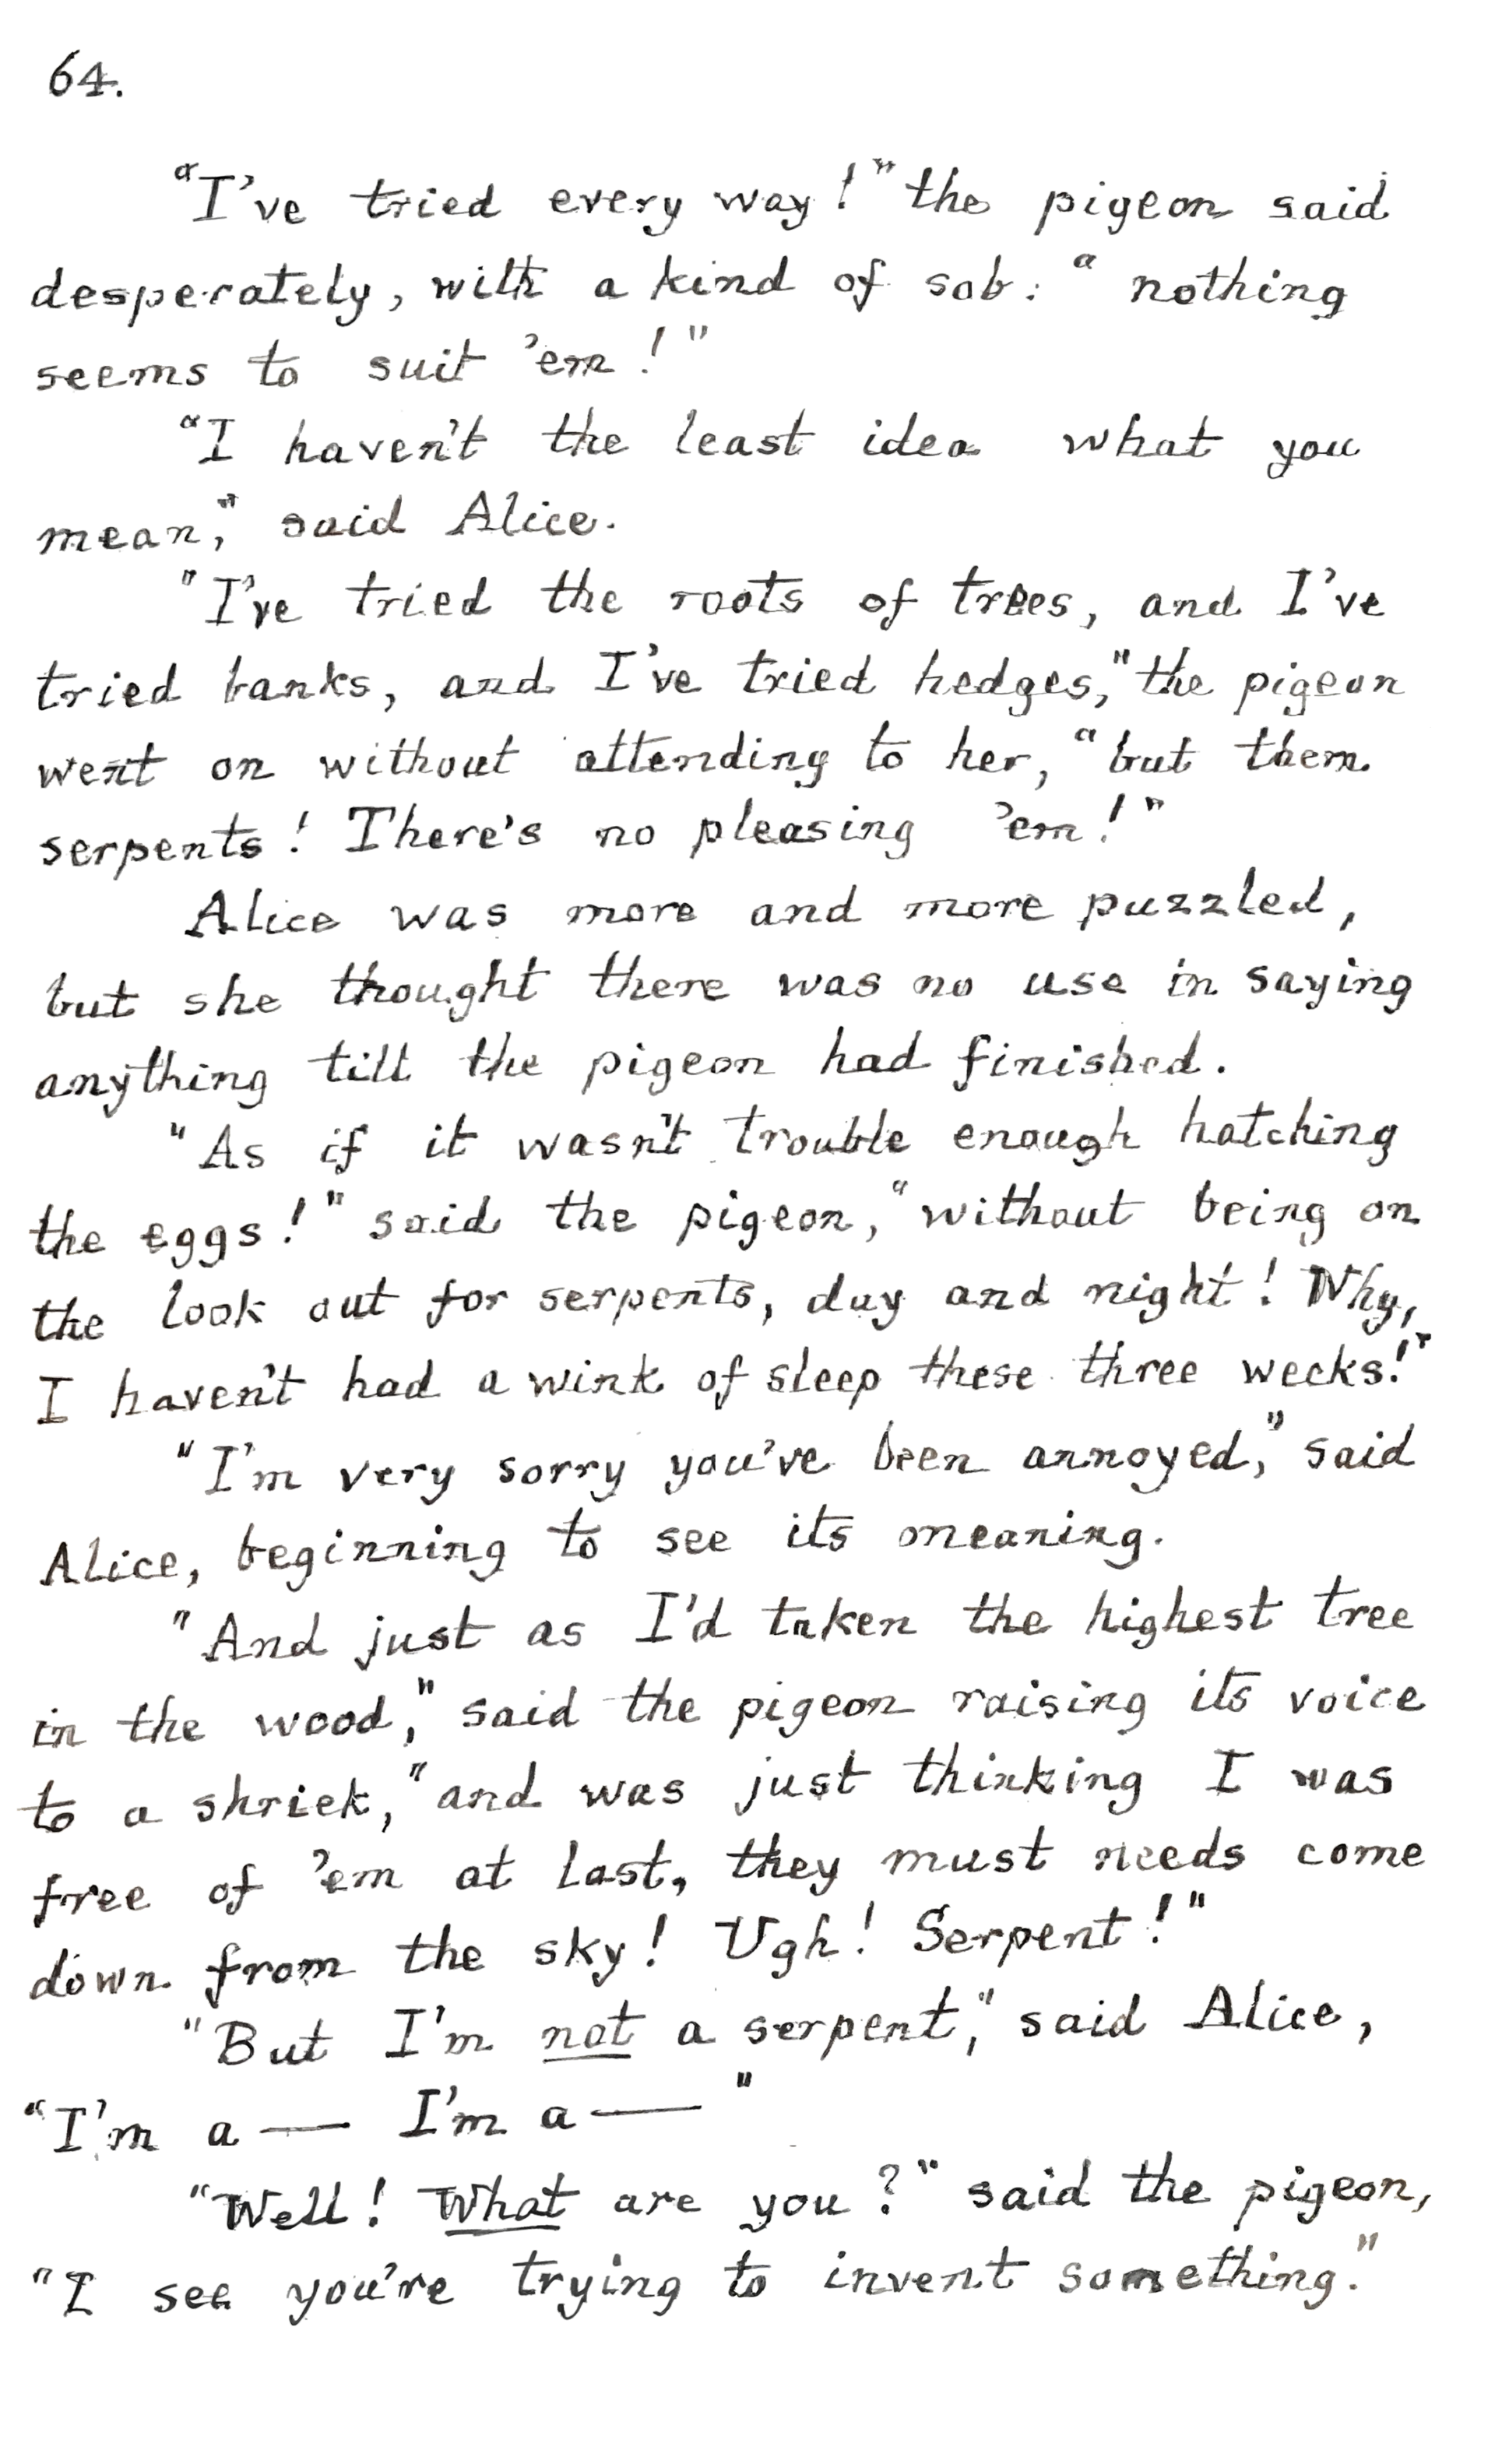 64.
"I've tried every way!" the pigeon said
desperately, with a kind of sob: "nothing
seems to suit 'em!"
"I haven't the least idea what you
mean," said Alice.
"I've tried the roots of trees, and I've
tried banks, and I've tried hedges," the pigeon
went on without attending to her, "but them
serpents! There's no pleasing 'em!"
Alice was more and more puzzled,
but she thought there was no use in saying
anything till the pigeon had finished.
"As if it wasn't trouble enough hatching
the eggs!" said the pigeon, "without being on
the look out for serpents, day and night! Why,
I haven't had a wink of sleep these three weeks!"
"I'm very sorry you've been annoyed," said
Alice, beginning to see its meaning.
"And just as I'd taken the highest tree
in the wood," said the pigeon raising its voice
to a shriek, "and was just thinking I was
free of 'em at last, they must needs come
down from the sky! Ugh! Serpent!"
"But I'm not a serpent," said Alice,
"I'm a — I'm a —"
"Well! What are you?" said the pigeon,
"I see you're trying to invent something."